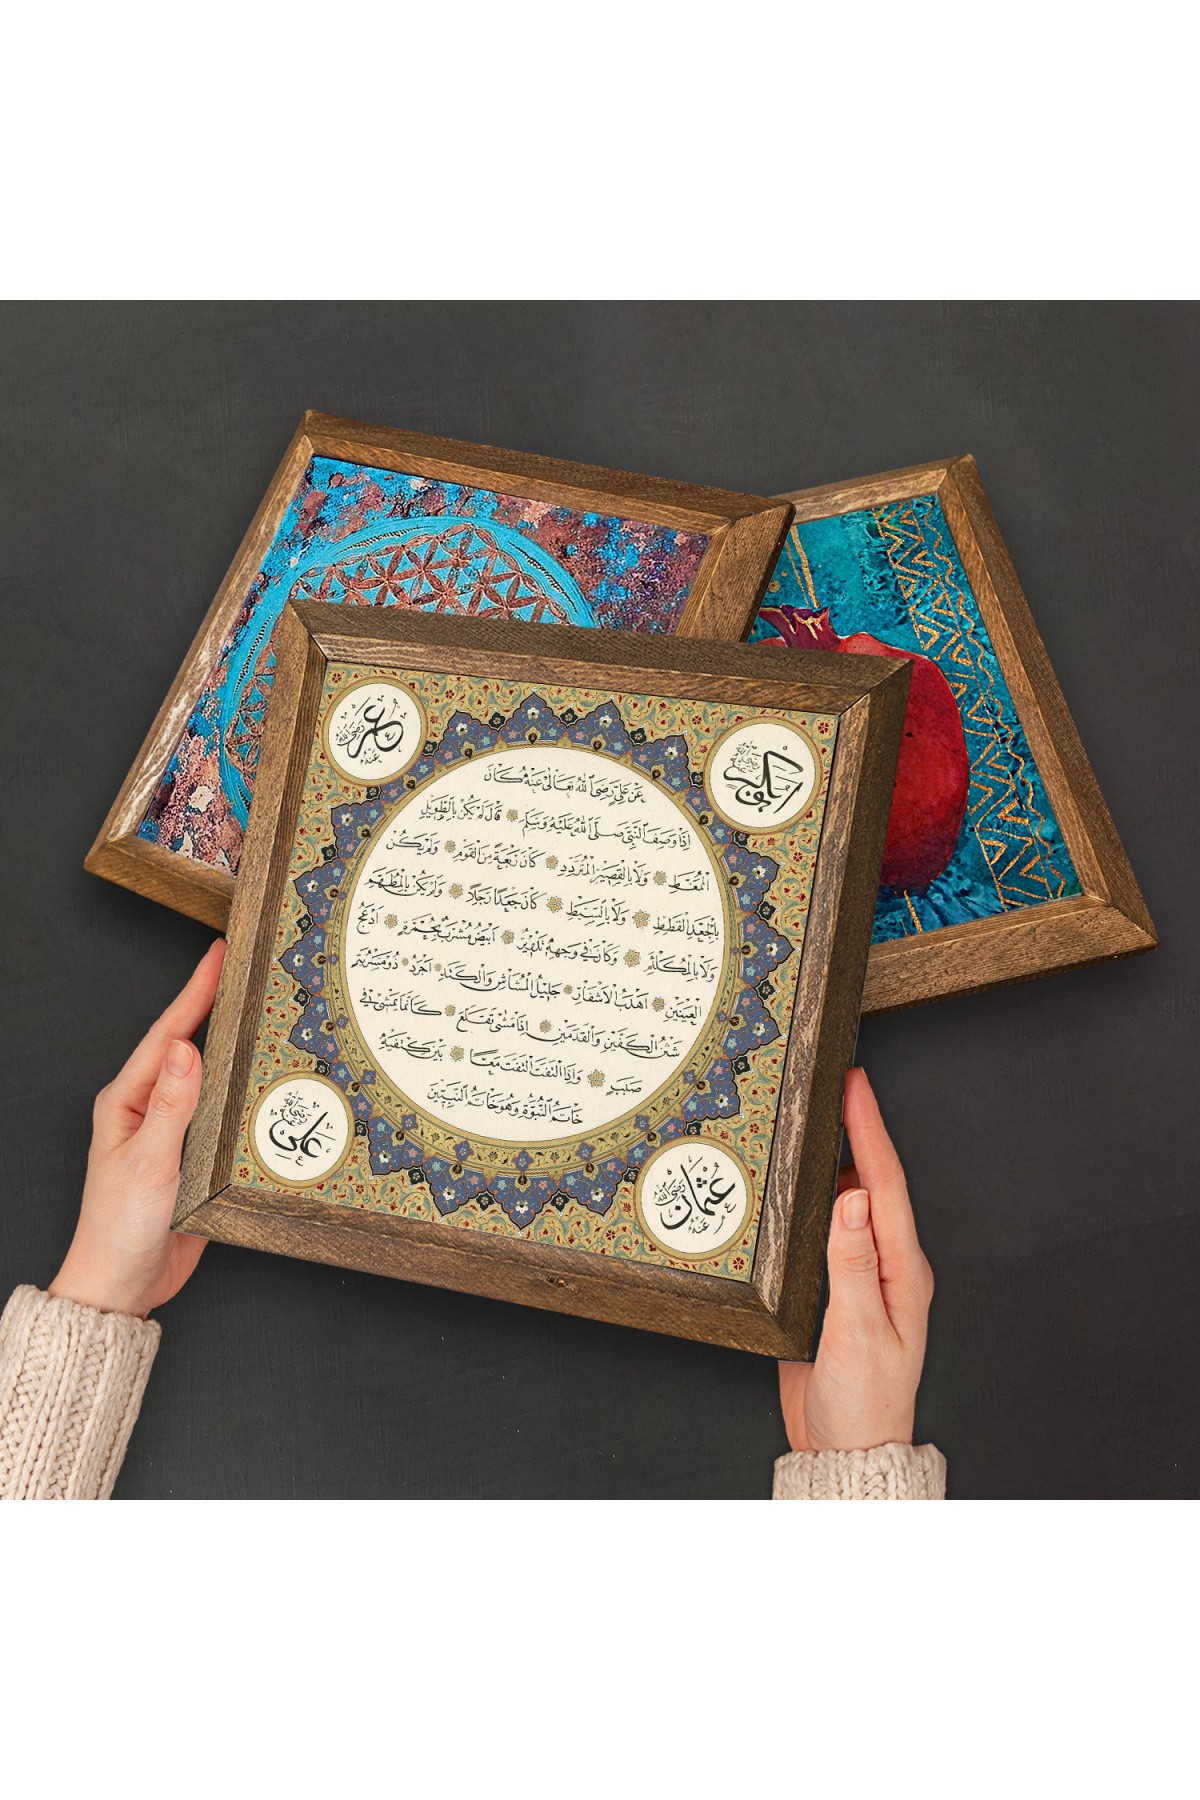 ابوبكر رضي الله عنه
عمر رضي الله عنه
عَنْ عَلِيٍّ رَضِيَ اللهُ تَعَالٰى عَنْهُ كَانَ
اِذَا وَصَفَ النَّبِيَّ صَلَّى اللهُ عَلَيْهِ وَسَلَّمَ قَالَ لَمْ يَكُنْ بِالطَّوِيلِ
الْمُمَّغِطِ وَلَا بِالْقَصِيرِ الْمُتَرَدِّدِ كَانَ رَبْعَةً مِنَ الْقَوْمِ وَلَمْ يَكُنْ
بِالْجَعْدِ الْقَطَطِ وَلَا بِالسَّبْطِ كَانَ جَعْدًا رَجِلًا وَلَمْ يَكُنْ بِالْمُطَهَّمِ
وَلَا بِالْمُكَلْثَمِ وَكَانَ فِي وَجْهِهِ تَدْوِيرٌ اَبْيَضُ مُشْرَبٌ بِحُمْرَةٍ اَدْعَجُ
الْعَيْنَيْنِ اَهْدَبُ الْاَشْفَارِ جَلِيلُ الْمُشَاشِ وَالْكَتَدِ اَجْرَدُ ذُو مَسْرُبَةٍ
شَثْنُ الْكَفَّيْنِ وَالْقَدَمَيْنِ اِذَا مَشٰى تَقَلَّعَ كَاَنَّمَا يَمْشِي فِي
صَبَبٍ وَاِذَا الْتَفَتَ الْتَفَتَ مَعًا بَيْنَ كَتِفَيْهِ
خَاتَمُ النُّبُوَّةِ وَهُوَ خَاتَمُ النَّبِيِّينَ
عثمان رضي الله عنه
علي رضي الله عنه